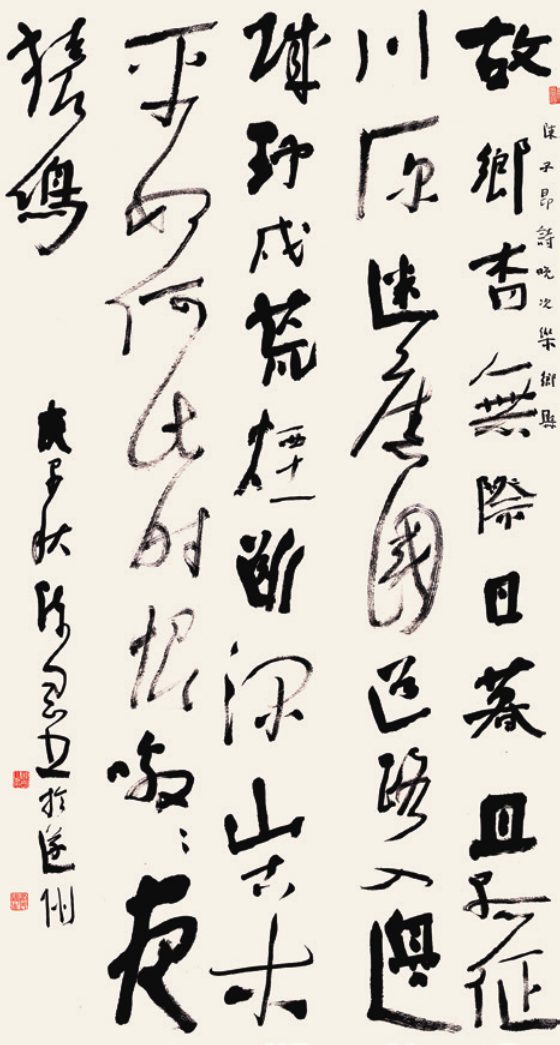 陳子昂詩晚次樂鄉縣
故鄉杳無際日暮且孤征
川原迷舊國道路入邊
城野戍荒煙斷深山古木
平如何此時恨噭々夜
猿鳴
庚子秋陳書於